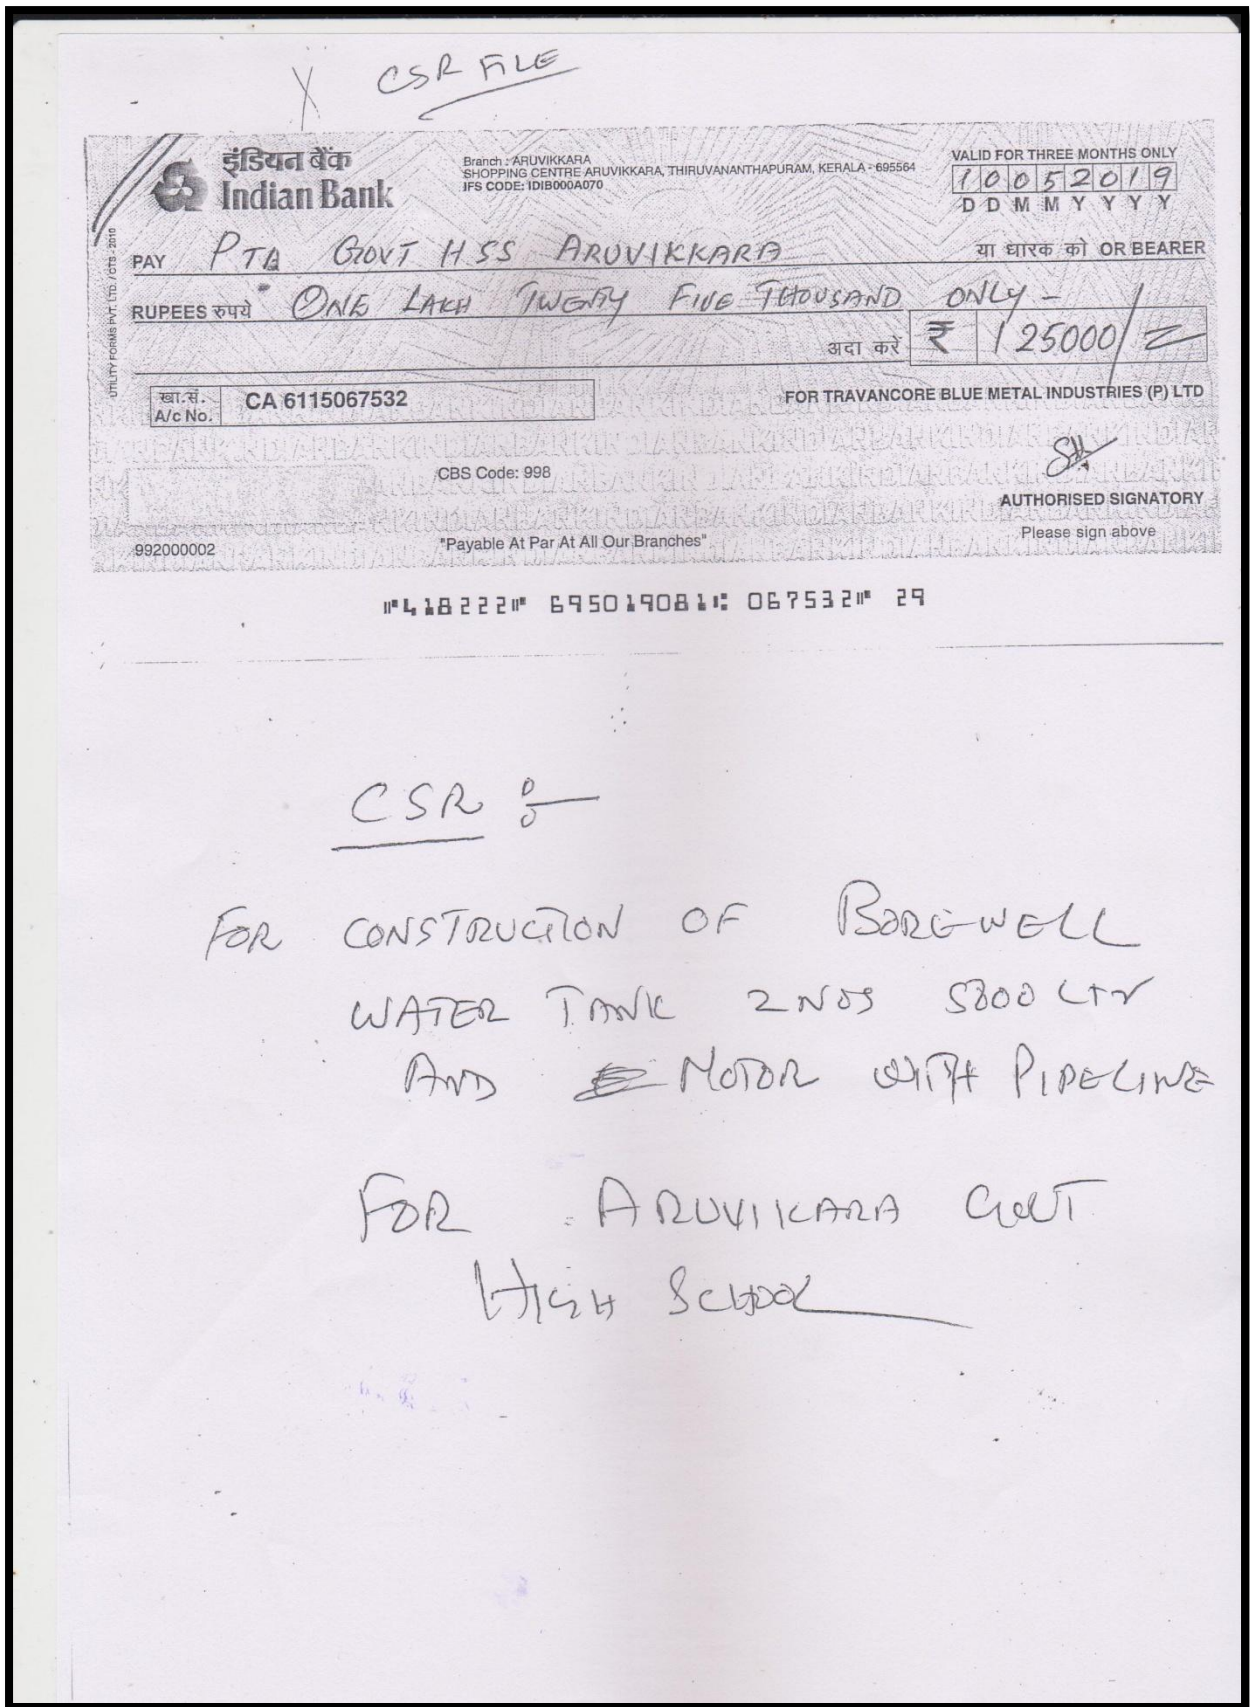 CSR FILE
इंडियन बैंक
Indian Bank
Branch : ARUVIKKARA
SHOPPING CENTRE ARUVIKKARA, THIRUVANANTHAPURAM, KERALA - 695564
IFS CODE: IDIB000A070
VALID FOR THREE MONTHS ONLY
10052019
D D M M Y Y Y Y
PAY PTA GOVT HSS ARUVIKKARA या धारक को OR BEARER
RUPEES रुपये ONE LAKH TWENTY FIVE THOUSAND ONLY -
अदा करें ₹ 125000/
UTILITY FORMS PVT. LTD. / CTS - 2010
खा.सं.
A/c No. CA 6115067532
FOR TRAVANCORE BLUE METAL INDUSTRIES (P) LTD
CBS Code: 998
AUTHORISED SIGNATORY
Please sign above
992000002 "Payable At Par At All Our Branches"
⑈418222⑈ 695019081⑆ 067532⑈ 29
CSR :-
FOR CONSTRUCTION OF BOREWELL
WATER TANK 2 NOS 5000 LTR
AND MOTOR WITH PIPELINE
FOR ARUVIKARA GOVT
HIGH SCHOOL